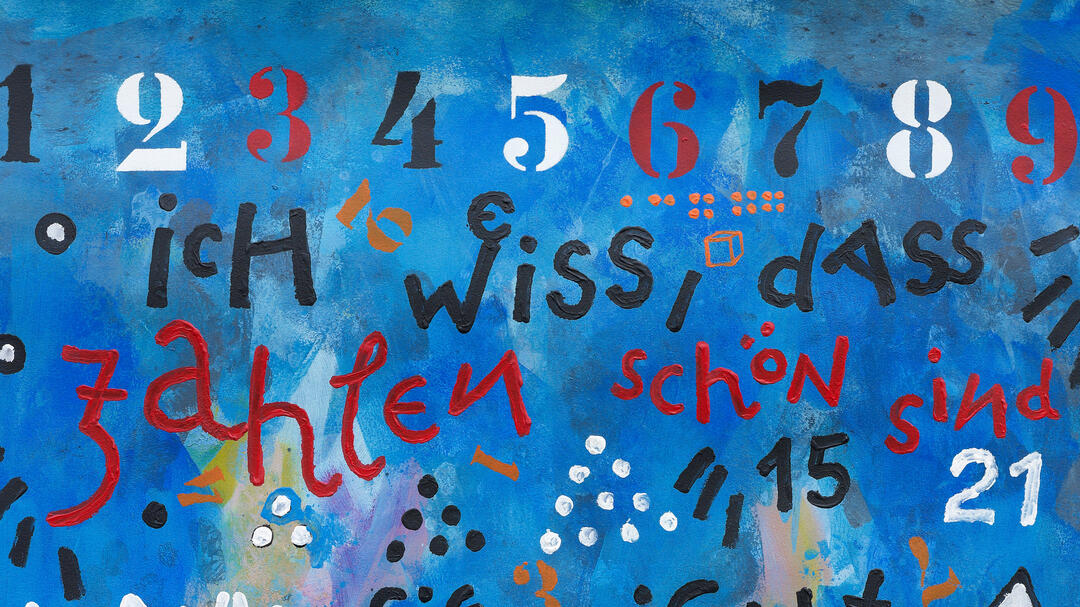 1 2 3 4 5 6 7 8 9
icH wEiSS, dASS
zahlEn schön sind
15 21